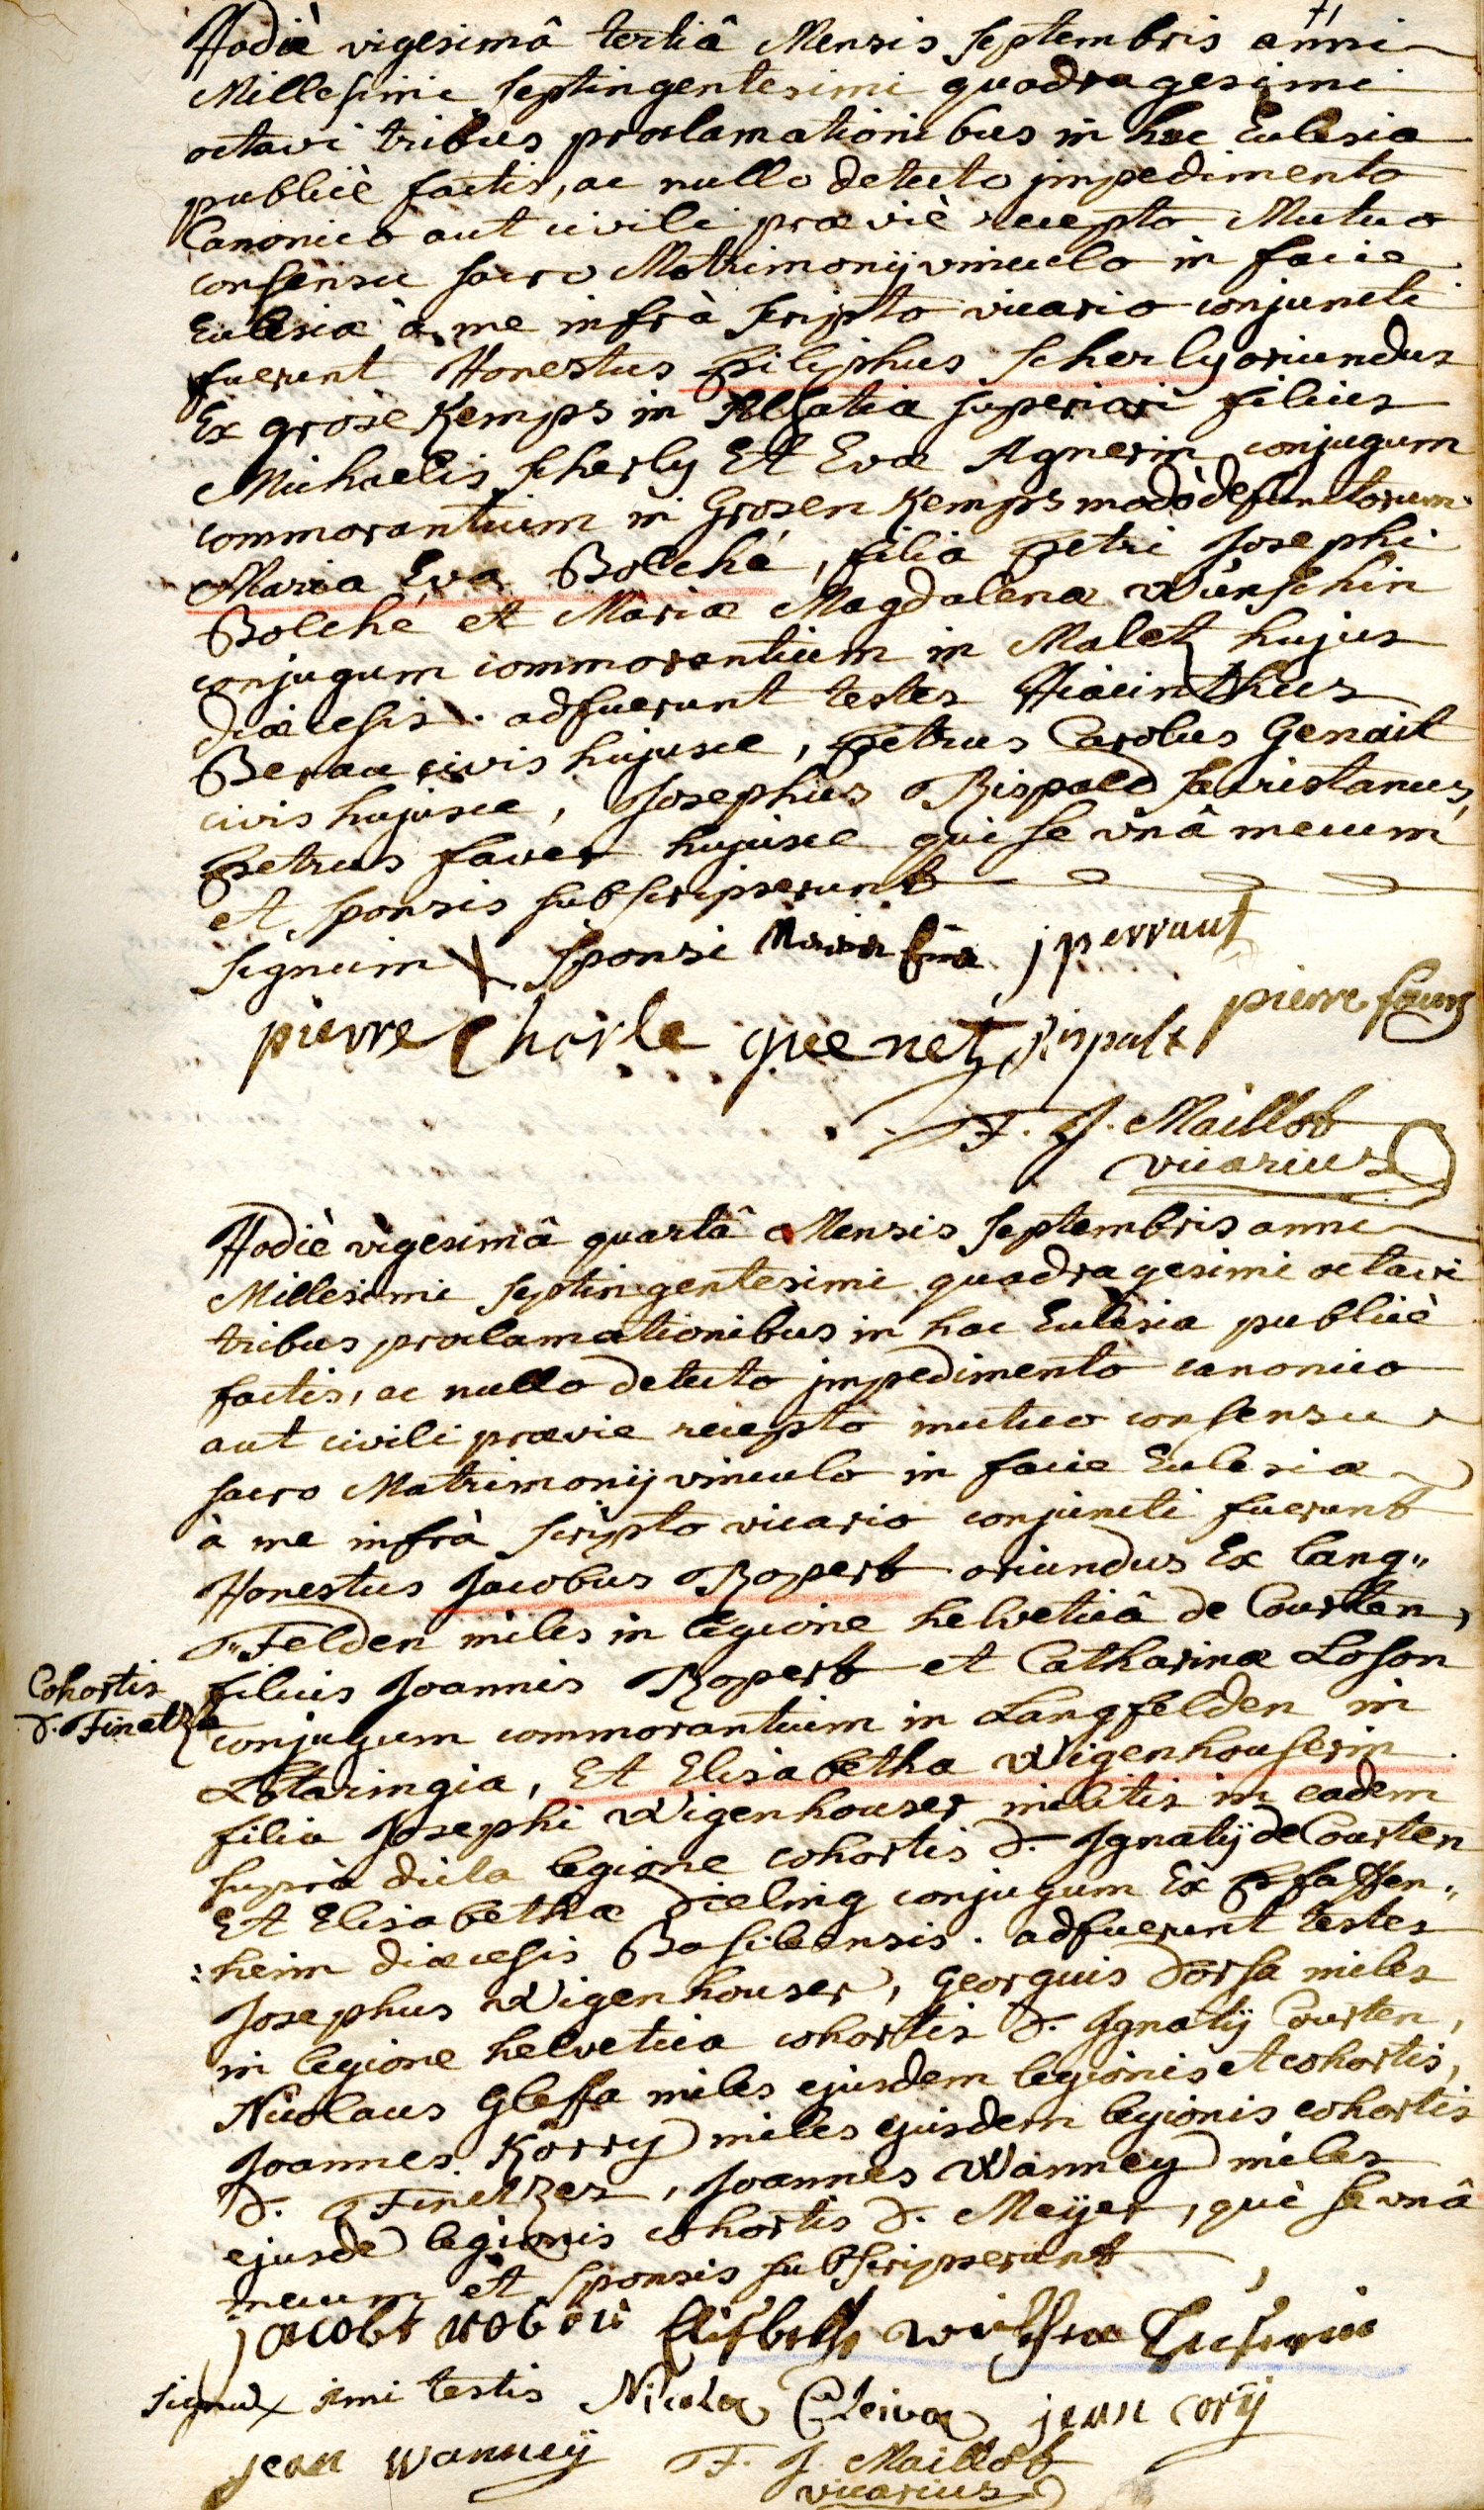 Hodiè vigesimâ tertiâ Mensis Septembris anni
Millesimi Septingentesimi quadragesimi
octavi tribus proclamationibus in hac Ecclesia
publicè factis, ac nullo detecto jmpedimento
Canonico aut civili præviè recepto Mutuo
consensu sacro Matrimonij vinculo in facie
Ecclesiæ à me infrà scripto vicario conjuncti
fuerunt Honestus philiphus Scherly oriundus
Ex grose Kemps in Alsatia superiori filius
Michaelis Scherly Et Evæ Agnerin conjugum
commorantium in Grosen Kemps modò defunctorum
Maria Eva Bolché, filia petri Josephi
Bolché et Mariæ Magdalenæ Wunschin
conjugum commorantium in Maletz hujus
diæcesis. adfuerunt testes Hiacinthus
Berau civis hujusce, petrus Carolus Genait
civis hujusce, Josephus Rispald Sacristanus,
petrus faver hujusce qui se vnâ mecum
et sponsis subscripserunt
signum X sponsi Maria Eva j perraut
pierre faver
pierre Charle guenet Rispalt
F. J. Maillot
vicarius
Hodiè vigesimâ quartâ Mensis Septembris anni
Millesimi Septingentesimi quadragesimi octavi
tribus proclamationibus in hac Ecclesia publicè
factis, ac nullo detecto jmpedimento canonico
aut civili prævie recepto mutuo consensu
sacro Matrimonij vinculo in facie Ecclesiæ
à me infrà scripto vicario conjuncti fuerunt
Honestus Jacobus Ropert oriundus Ex Lang„
„Felden miles in legione helveticâ de Courten,
Cohortis
D. Finetze
filius Joannis Ropert et Catharinæ Loson
conjugum commorantium in Langfelden in
Lotaringia, Et Elisabetha Wigenhouserin
filia Josephi Wigenhouser militis in eadem
suprà dicta legione cohortis D. Jgnatij de Courten
Et Elisabethæ Dieling conjugum Ex pfaffen„
:heim diæcesis Basileensis. adfuerunt testes
Josephus Wigenhouser, Georgius Dorsa miles
in legione helvetica cohortis D. Jgnatij Courten,
Nicolaus Gleffa miles ejusdem legionis et cohortis,
Joannes Korry miles ejusdem legionis cohortis
D. Finetzer, Joannes Wanney miles
ejusde legionis cohortis D. Meÿer, qui se vnâ
mecum et sponsis subscripserunt
jacobt
signu X testis jean corij
jean wanneÿ F. J. Maillot
vicarius